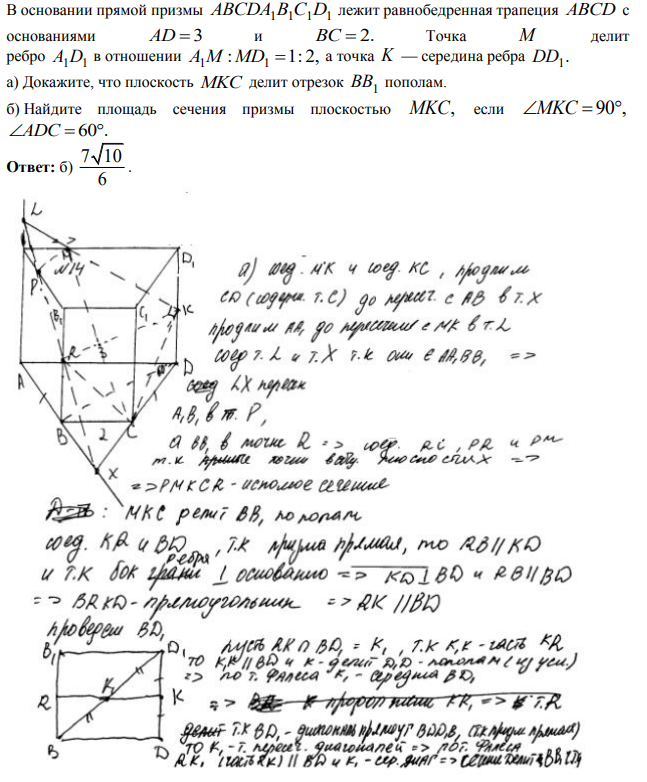 В основании прямой призмы ABCDA₁B₁C₁D₁ лежит равнобедренная трапеция ABCD с
основаниями AD = 3 и BC = 2. Точка M делит
ребро A₁D₁ в отношении A₁M : MD₁ = 1 : 2, а точка K — середина ребра DD₁.
а) Докажите, что плоскость MKC делит отрезок BB₁ пополам.
б) Найдите площадь сечения призмы плоскостью MKC, если ∠MKC = 90°,
∠ADC = 60°.
Ответ: б) 7√10/6.
L
M
D₁
N14
P
B₁
C₁
K
R
3
A
D
B
2
C
X
а) соед. MK и соед. KC, продлим
CD (содерж. т. C) до пересеч. с AB в т. X
продлим AA₁ до пересечения с MK в т. L
соед т. L и т. X т.к они ∈ AA₁BB₁ =>
LX пересек
A₁B₁ в т. P,
а BB₁ в точке R => соед. RC, PR и PM
т.к точки в плоскостях =>
=> PMKCR - искомое сечение
: MKC делит BB₁ пополам
соед. KR и BD, т.к призма прямая, то RB || KD
и т.к бок ребра грани ⊥ основанию => KD ⊥ BD и RB || BD
=> BRKD - прямоугольник => RK || BD
проведем BD₁
B₁
D₁
R
K₁
K
B
D
пусть RK ∩ BD₁ = K₁, т.к K₁K - часть KR
то K₁K || BD и K - делит D₁D - пополам (из усл.)
=> по т. Фалеса K₁ - середина BD₁
=> KK₁ => т. R
делит т.к BD₁ - диагональ прямоуг BDD₁B₁ (тк призма прямая)
то K₁ - т. пересеч. диагоналей => по т. Фалеса
RK₁ (часть RK) || BD и K₁ - сер. диаг => сечение делит BB₁